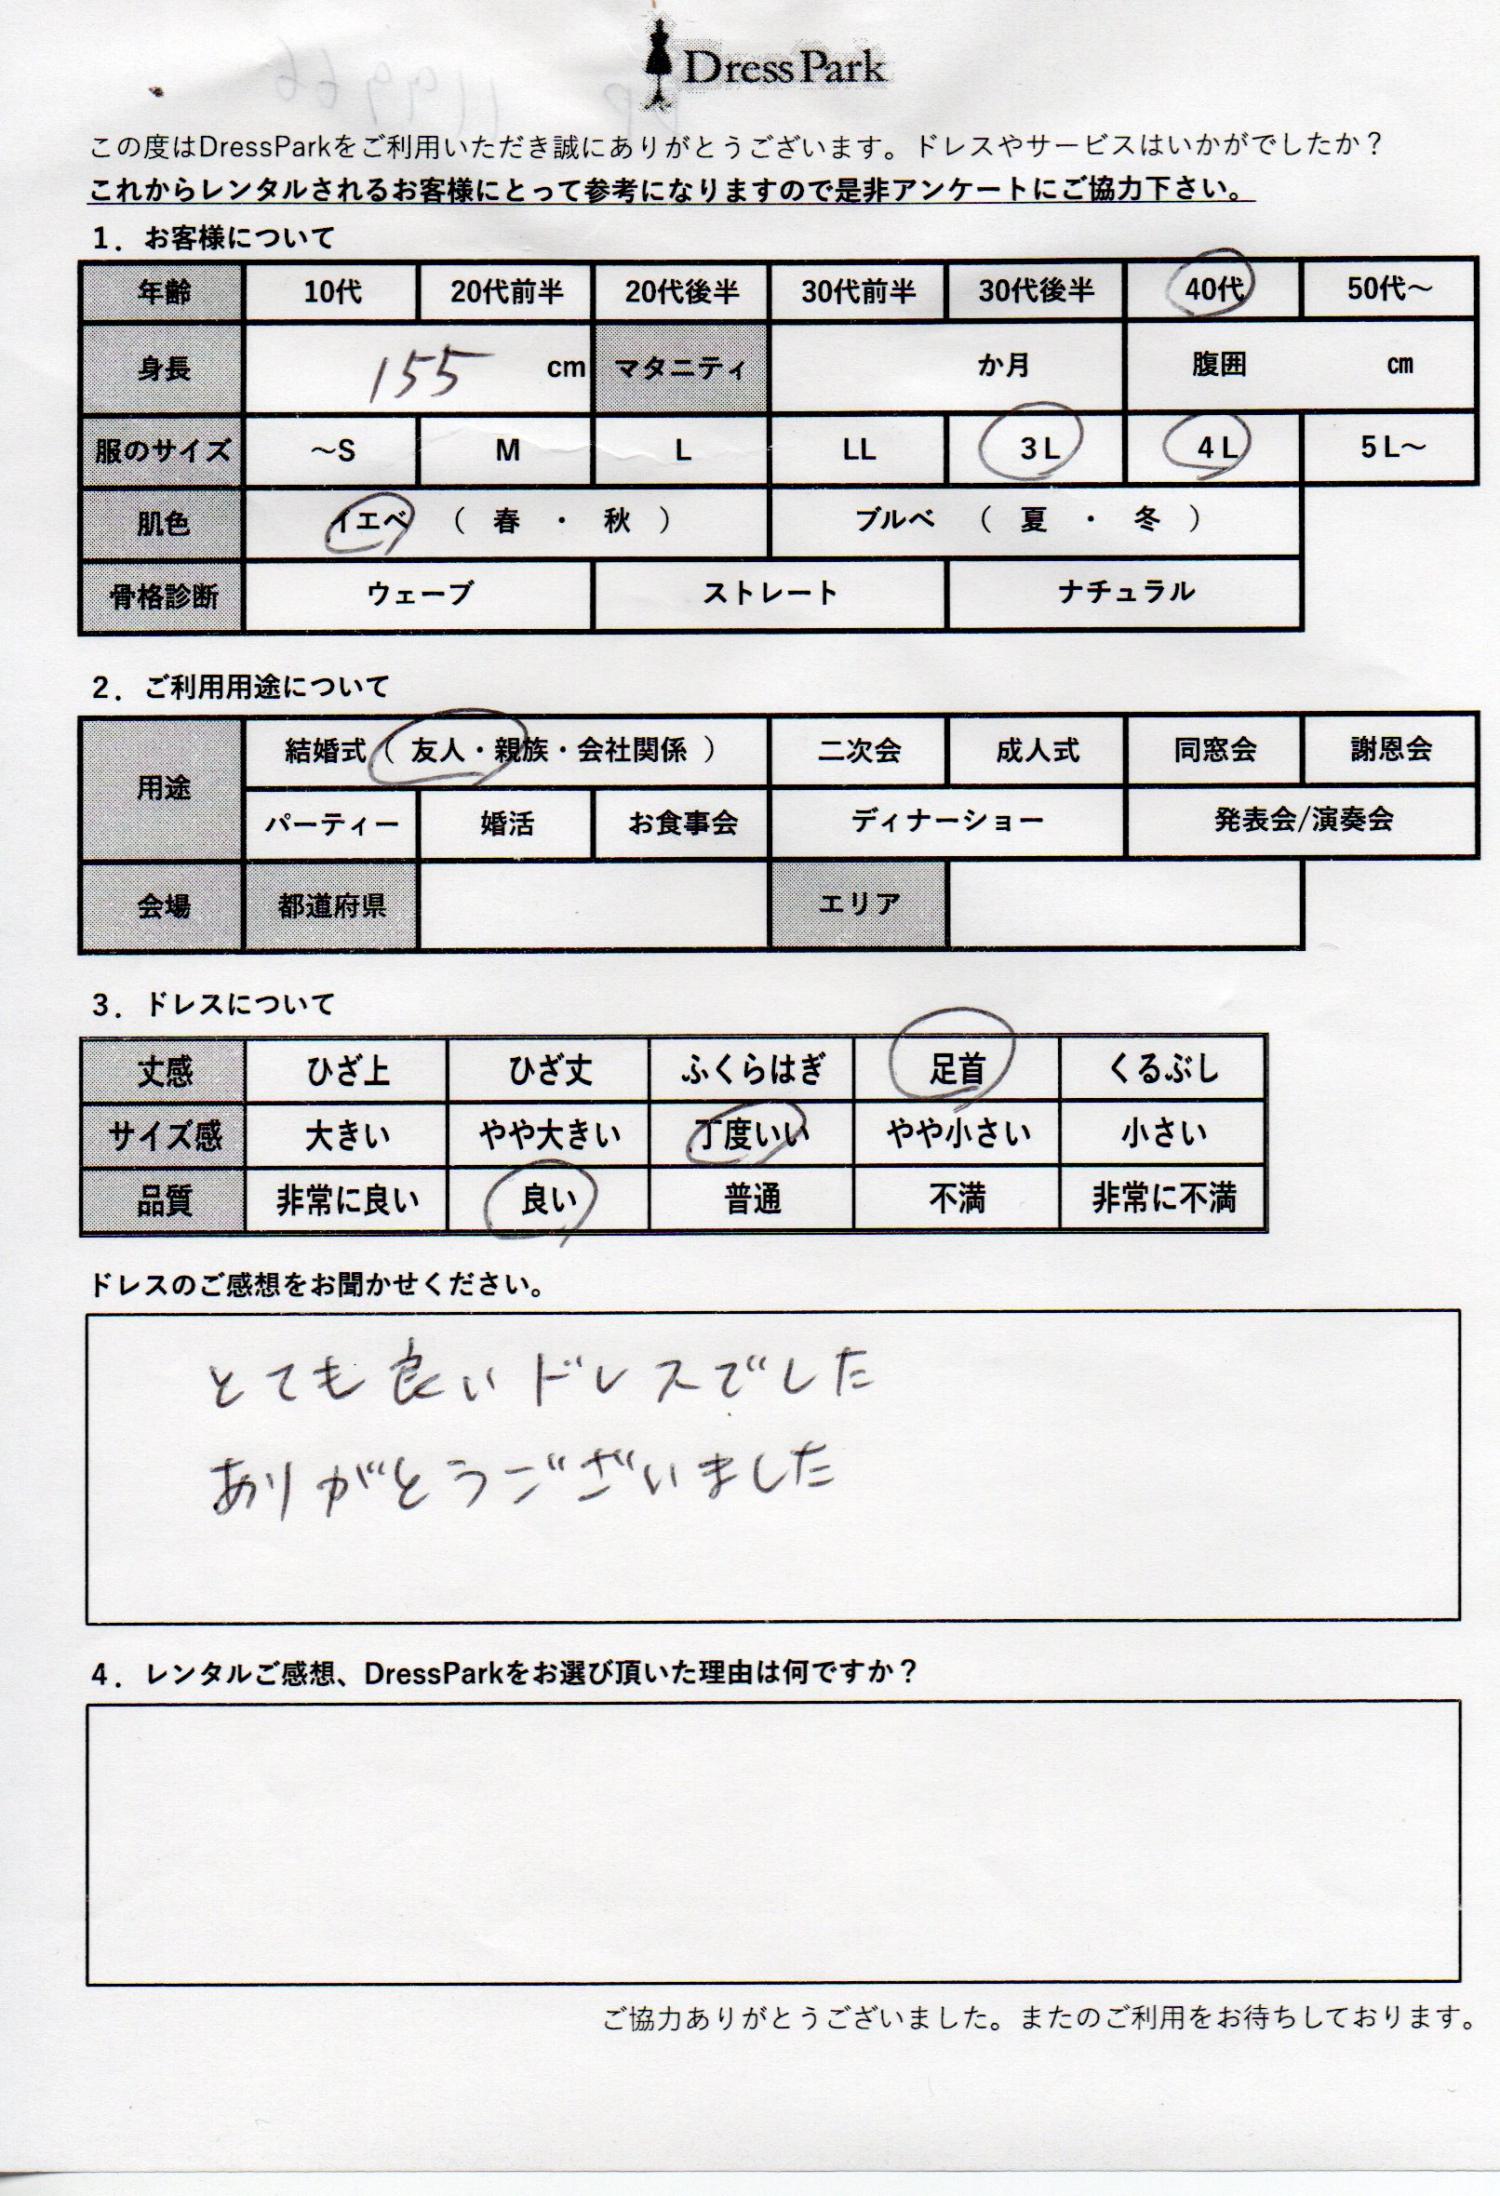 Dress Park
この度はDressParkをご利用いただき誠にありがとうございます。ドレスやサービスはいかがでしたか？
これからレンタルされるお客様にとって参考になりますので是非アンケートにご協力下さい。
1．お客様について
年齢 10代 20代前半 20代後半 30代前半 30代後半 40代 50代～
身長 155 cm マタニティ か月 腹囲 ㎝
服のサイズ ～S M L LL 3L 4L 5L～
肌色 イエベ （ 春 ・ 秋 ） ブルベ （ 夏 ・ 冬 ）
骨格診断 ウェーブ ストレート ナチュラル
2．ご利用用途について
用途 結婚式（ 友人・親族・会社関係 ） 二次会 成人式 同窓会 謝恩会
パーティー 婚活 お食事会 ディナーショー 発表会/演奏会
会場 都道府県 エリア
3．ドレスについて
丈感 ひざ上 ひざ丈 ふくらはぎ 足首 くるぶし
サイズ感 大きい やや大きい 丁度いい やや小さい 小さい
品質 非常に良い 良い 普通 不満 非常に不満
ドレスのご感想をお聞かせください。
とても良いドレスでした
ありがとうございました
4．レンタルご感想、DressParkをお選び頂いた理由は何ですか？
ご協力ありがとうございました。またのご利用をお待ちしております。